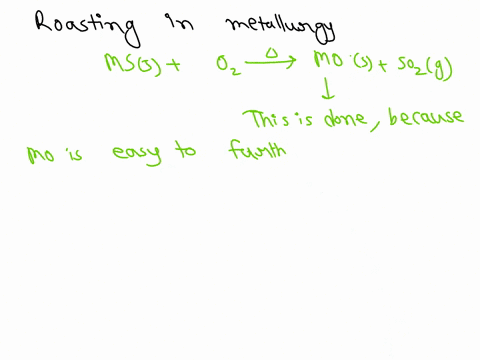 Roasting in metallurgy
MS(s) + O2 —Δ→ MO (s) + SO2(g)
↓
This is done, because
MO is easy to furth